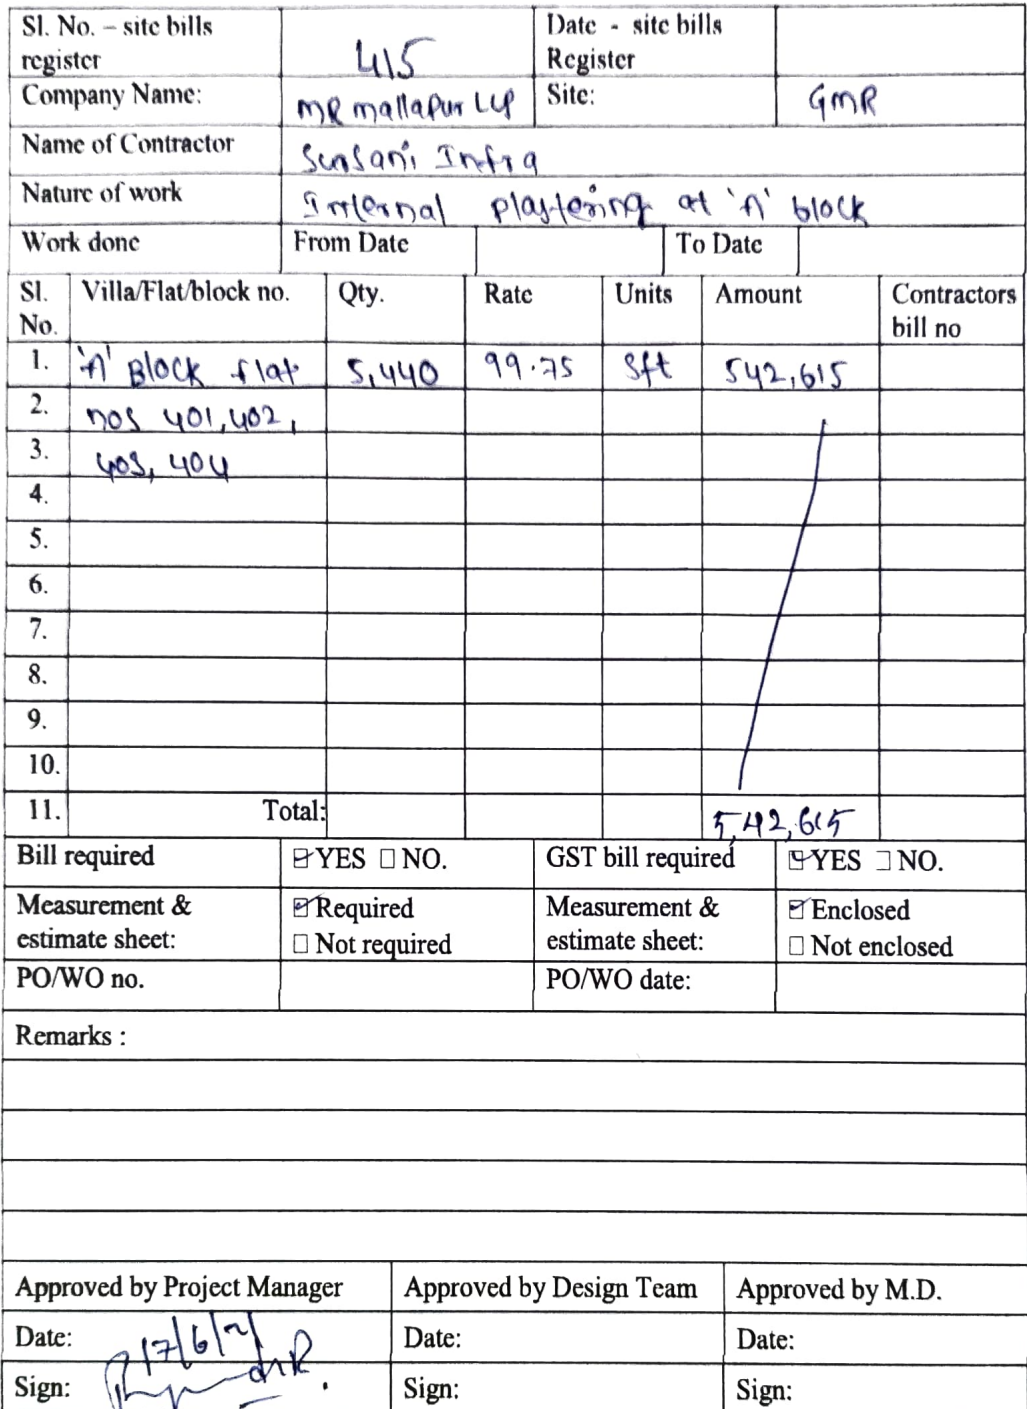 Sl. No. – site bills register 415 Date - site bills Register
Company Name: MR Mallapur LLP Site: GMR
Name of Contractor Infra
Nature of work Internal plastering at 'A' block
Work done From Date To Date
Sl. No. Villa/Flat/block no. Qty. Rate Units Amount Contractors bill no
1. 'A' Block flat 5,440 99.75 Sft 542,615
2. nos 401,402,
3. 403, 404
4.
5.
6.
7.
8.
9.
10.
11. Total: 5,42,615
Bill required ☑YES ☐ NO. GST bill required ☑YES ☐ NO.
Measurement & estimate sheet: ☑Required ☐ Not required Measurement & estimate sheet: ☑Enclosed ☐ Not enclosed
PO/WO no. PO/WO date:
Remarks :
Approved by Project Manager Approved by Design Team Approved by M.D.
Date: 17/6/21 Date: Date:
Sign: Sign: Sign: